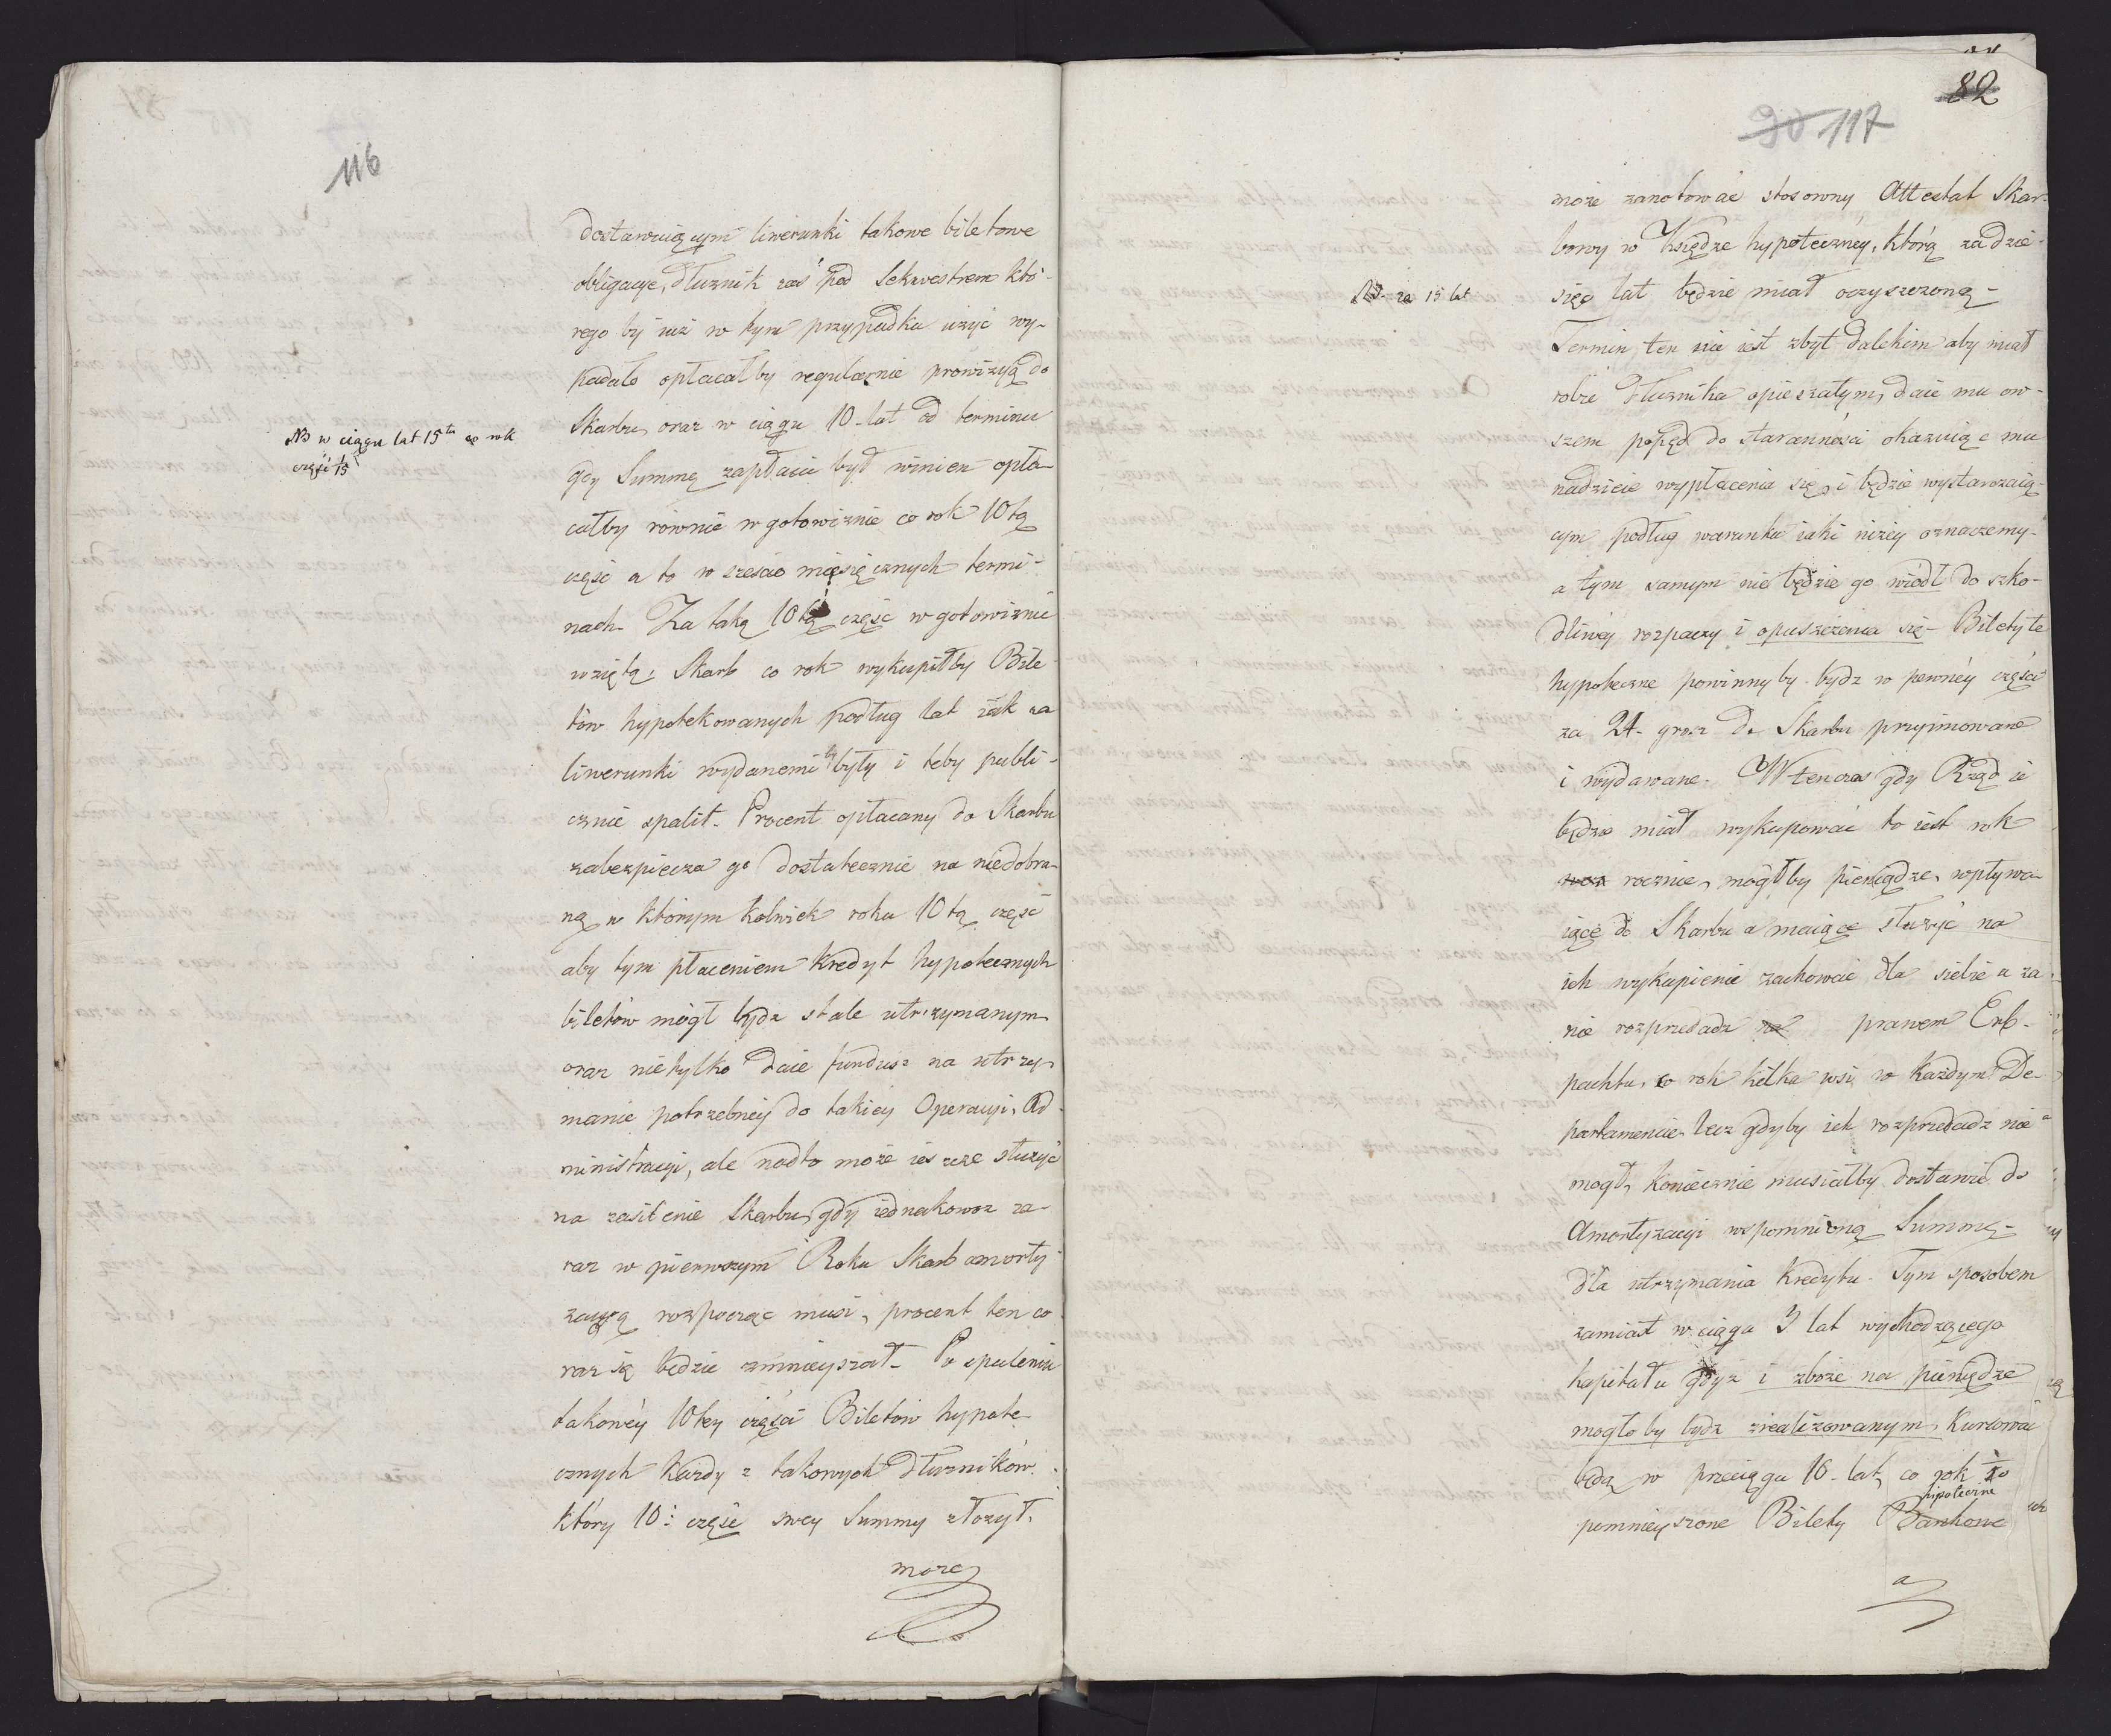 116
dostawuiącym liwerunki takowe biletowe
obligacje, dłuznik zaś pod Sekwestrem któ-
rego by iuż w tym przypadku użyć wy-
padało opłacałby regularnie prowizyą do
Skarbu, oraz w ciągu 10-lat od terminu
NB w ciągu lat 15tu co rok
części 1/15
gdy Summę zapłacić był winien opła-
całby równie w gotowiznie co rok 10tą
część a to w sześcio miesięcznych termi-
nach. Za taką 10tą część w gotowiznie
wziętą, Skarb co rok wykupiłby Bile-
tów hypotekowanych podług lat iak za
liwerunki wydanemi by były i teby publi-
cznie spalił. Procent opłacany do Skarbu
zabezpiecza go dostatecznie na niedobra-
ną w którym kolwiek roku 10tą część
aby tym płaceniem kredyt hypotecznych
biletów mógł bydz stale utrzymanym
oraz nietylko daie fundusz na utrzy-
manie potrzebney do takiey Operacyi, Ad-
ministracyi, ale nadto może ieszcze służyć
na zasilenie Skarbu, gdy iednakowoz za-
raz w pierwszym Roku Skarb amorty-
zacyą rozpocząc musi, procent ten co
raz się będzie zmnieyszał. Po spaleniu
takowéy 10tey części Biletów hypote-
cznych każdy z takowych Dłuzników
który 10: część swey Summy złożył,
może
82
90 117
może zanotować stosowny Attestat Skar-
bowy w Księdze hypotecznéy, którą za dzie-
NB. za 15 lat
sięć lat będzie miał oczyszczoną-
Termin ten nie iest zbyt dalekim aby miał
robić Dłuznika opieszałym, daie mu ow-
szem popęd do staranności okazuiąc mu
nadzieie wypłacenia się, i będzie wystarczaią-
cym podług warunku iaki niżey oznaczemy-
a tym samym nie będzie go wiodł do szko-
dliwey rozpaczy i opuszczenia się- Bilety te
hypoteczne powinny by bydz w pewnéy części
za 24. grosz do Skarbu przyimowane
i wydawane. W tenczas gdy Rząd ie
będzie miał wykupować to iest rok
rocznie, mógłby pieniądze, wpływa-
iące do Skarbu a maiące służyć na
ich wykupienie zachować dla siebie a za
nie rozprzedadz prawem Enf-
pachtu, co rok kilka wsi w każdym De-
partamencie. lecz gdyby ich rozprzedadz nie
mogł, koniecznie musiałby dostawić do
Amortyzacyi wspomnioną Summę-
dla utrzymania Kredytu. Tym sposobem
zamiast w ciągu 3 lat wychodzącego
kapitału gdyż i zboże na pieniądze
mogło by bydz zrealizowanym, Kursować
będą w przeciągu 10. lat, co rok 1/10
pomnieyszone Bilety Bankowe
hipoteczne
a